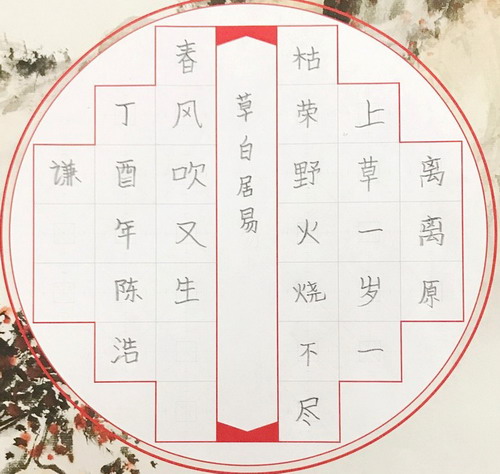 离离原
上草一岁一
枯荣野火烧不尽
草白居易
春风吹又生
丁酉年陈浩
谦